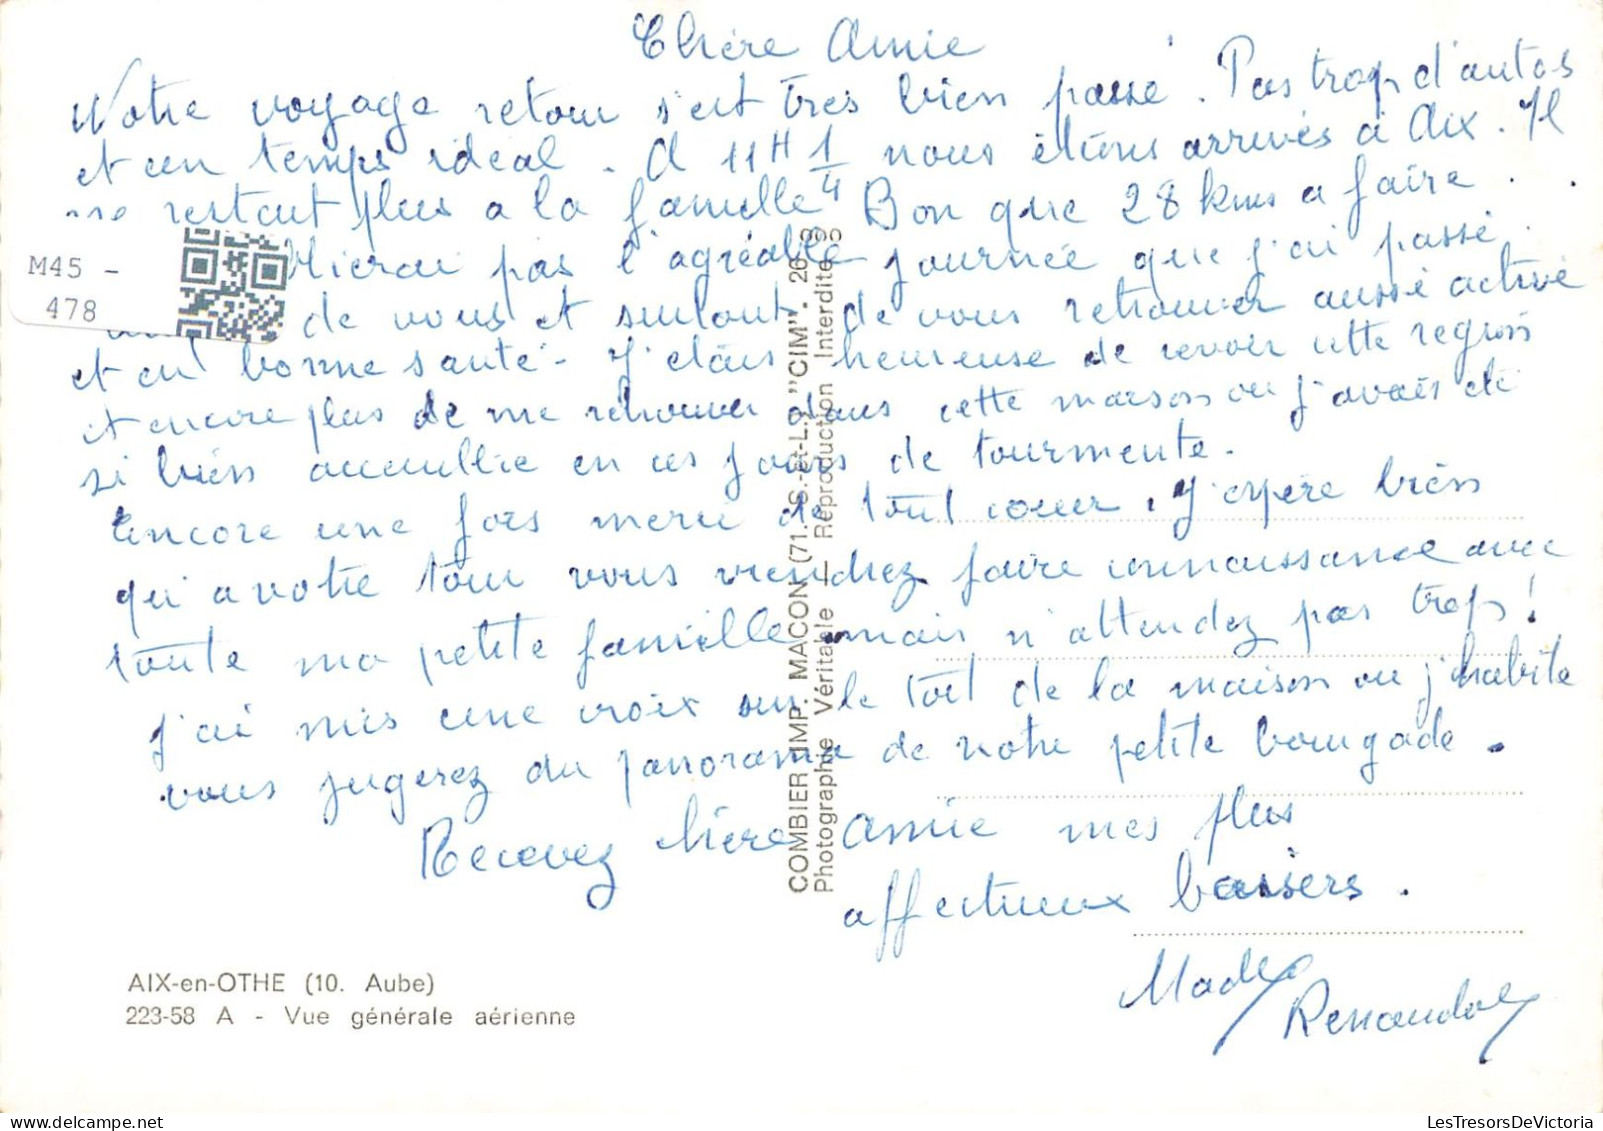 Chère Amie
Notre voyage retour s'est très bien passé. Pas trop d'autos
et un temps idéal. A 11H 1/4 nous étions arrivés à Aix. Il
ne restait plus a la famille Bon que 28 kms a faire.
pas l'agréable journée que j'ai passé
de vous et surtout de vous retrouver aussi active
et en bonne santé - J'étais heureuse de revoir cette region
et encore plus de me retrouver dans cette maison ou j'avais été
si bien accueillie en ces jours de tourmente.
Encore une fois merci de tout coeur. J'espère bien
qu'a votre tour vous viendrez faire connaissance avec
toute ma petite famille mais n'attendez pas trop!
J'ai mis une croix sur le toit de la maison ou j'habite
vous jugerez du panorama de notre petite bourgade.
Recevez chère amie mes plus
affectueux baisers.
Mady
M45 -
478
COMBIER IMP. MACON (71. S.-et-L.) "CIM".
Photographie Véritable - Reproduction Interdite
AIX-en-OTHE (10. Aube)
223-58 A - Vue générale aérienne
LesTresorsDeVictoria